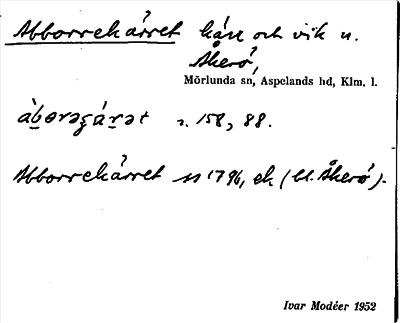 Abborrekärret kärr och vik u.
Åkerö,
Mörlunda sn, Aspelands hd, Klm. l.
158, 88.
Abborrekärret 1796, ek (u. Åkerö).
Ivar Modéer 1952